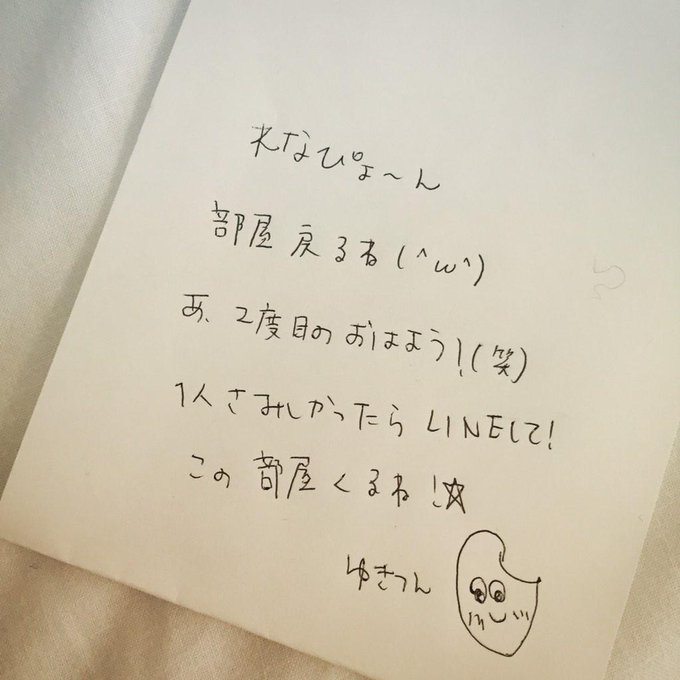 れなぴょ〜ん
部屋戻るね(^ω^)
あ、2度目のおはよう!(笑)
1人さみしかったらLINEして!
この部屋くるね!☆
ゆきつん